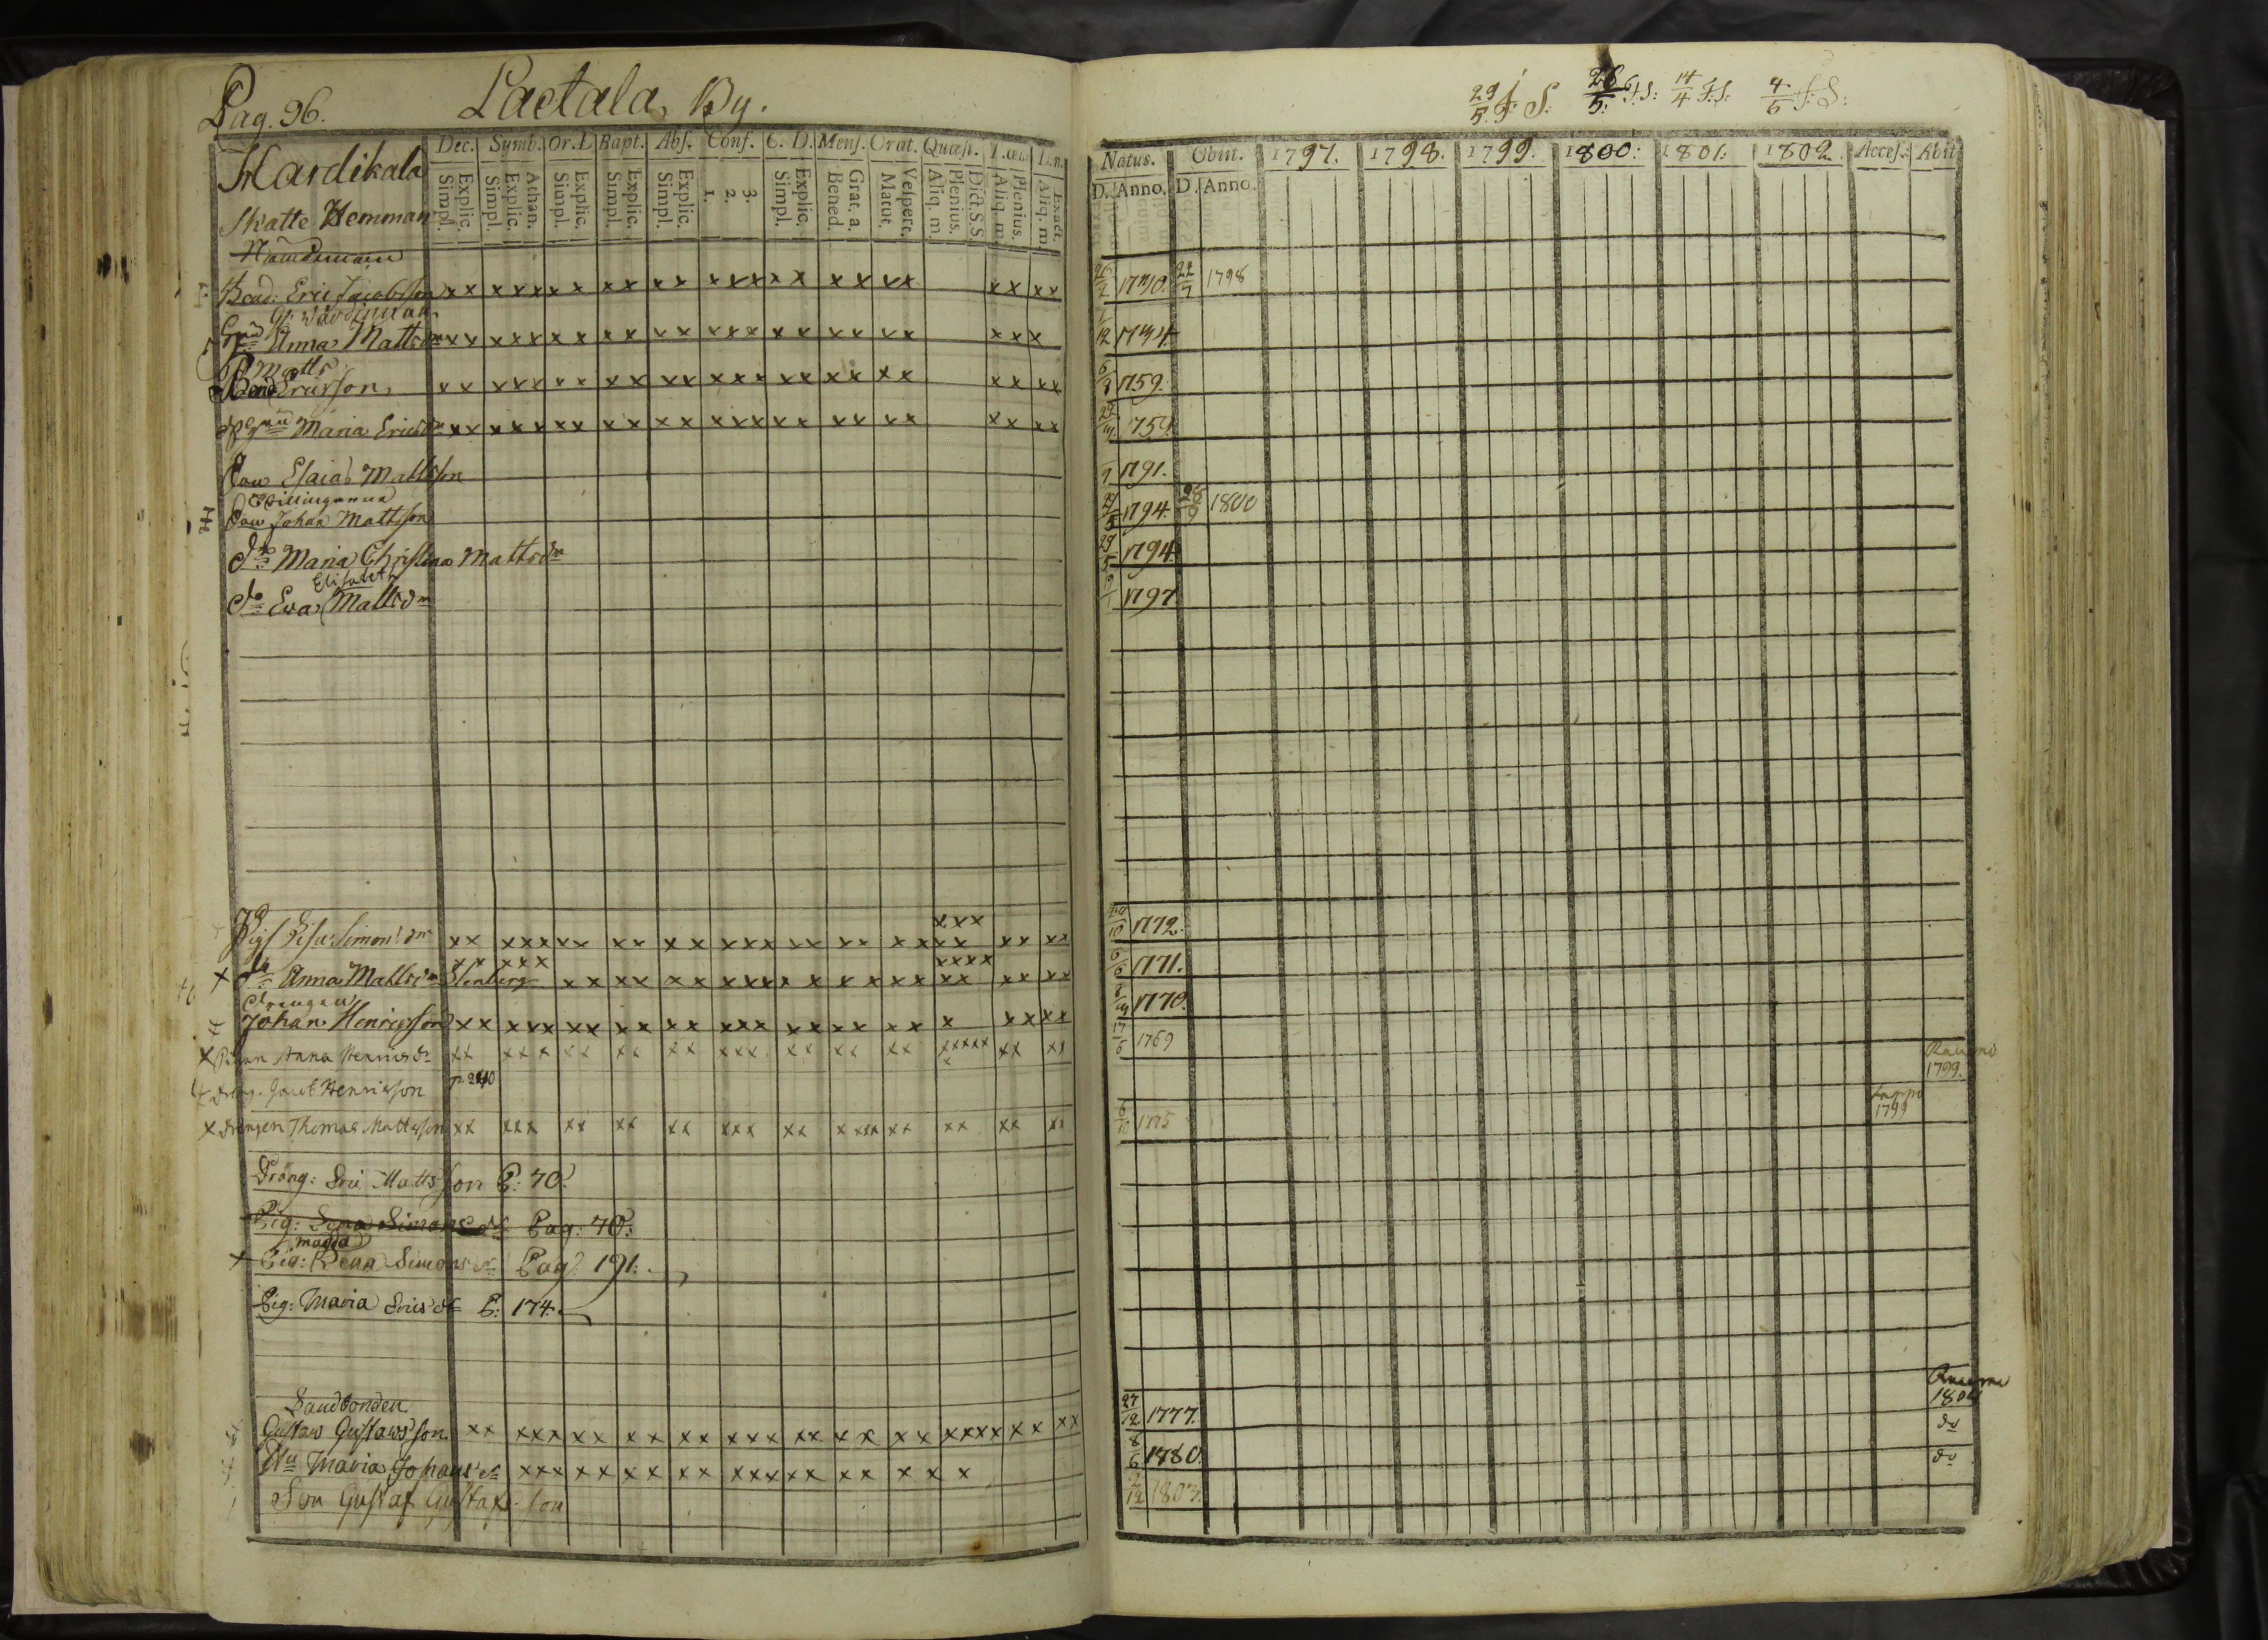 Pag. 96. Laetala By.
Dec. Symb. Or. D Bapt. Abs. Conf. C. D. Mens. Orat. Quæst.
Explic. Simpl. Athan. Explic. Simpl. Explic. Simpl. Explic. Simpl. Explic. Simpl. 3. 2. 1. Explic. Simpl. Grat. a. Bened. Vespert. Matut. Dict. S.S Plenius. Aliq. m Plenius. Aliq. m. Exact. Aliq. m.
Hardikala
Skatte Hemman
Nämdeman
Bond. Eric Jacobsson xx xxx xx xx xx xxx xx xx xx xx xx
Anna Mattsdr xx xxx xx xx xx xxx xx xx xx xxx
Matts
Bond Ericsson xx xxx xx xx xx xxx xx xx xx xx xx
Maria Ericsdr xx xxx xx xx xx xxx xx xx xx xx xx
Son Esaias Mattsson
Son Johan Mattsson
do Maria Christina Mattsdr
Elisabeth
do Eva Mattsdr
xxx
Pig Lisa Simonsdr xx xxx xx xx xx xxx xx xx xx xx xx xx
xx xxx xxxx
do Anna Mattsdr Stenberg xx xx xx xxx xx xx xx xx xx xx
Drengen
Johan Henricsson xx xxx xx xx xx xxx xx xx xx x xx xx
x Pigan Anna Henricsdr xx xxx xx xx xx xxx xx xx xx xxxxx xx xx
x
Dreng. Jacob Henricsson p. 240
x Drengen Thomas Mattsson xx xxx xx xx xx xxx xx xxxx xx xx xx xx
Dräng: Eric Mattsson P: 70.
Pig: Lena Simonsdr Pag: 70:
Magda
x Pig: Lena Simonsdr Pag: 191.
Pig: Maria Ericsdr P: 174.
Landbonden
Gustaw Gustawsson xx xxx xx xx xx xxx xx xx xx xxxx xx xx
Hu Maria Johansdr xxx xx xx xx xxx xx xx xx x
Son Gustaf Gustafsson
29/5. F. S. 28/5. F.S: 14/4 F.S: 4/5 F: S:
Natus. Obiit. 1797. 1798. 1799. 1800: 1801: 1802. Acces. Abiit
D. Anno. D. Anno.
1740 22/7 1798
12 1744
6/3 1759.
1759.
1791.
1794. 1800
29/5 1794
1797
10 1772.
6/6 1771.
1770.
17/6 1769
Raumo 1799.
Lappo 1799
6/10 1775
Raumo 1804
27/12 1777. do
8/6 1780. do
12 1803.